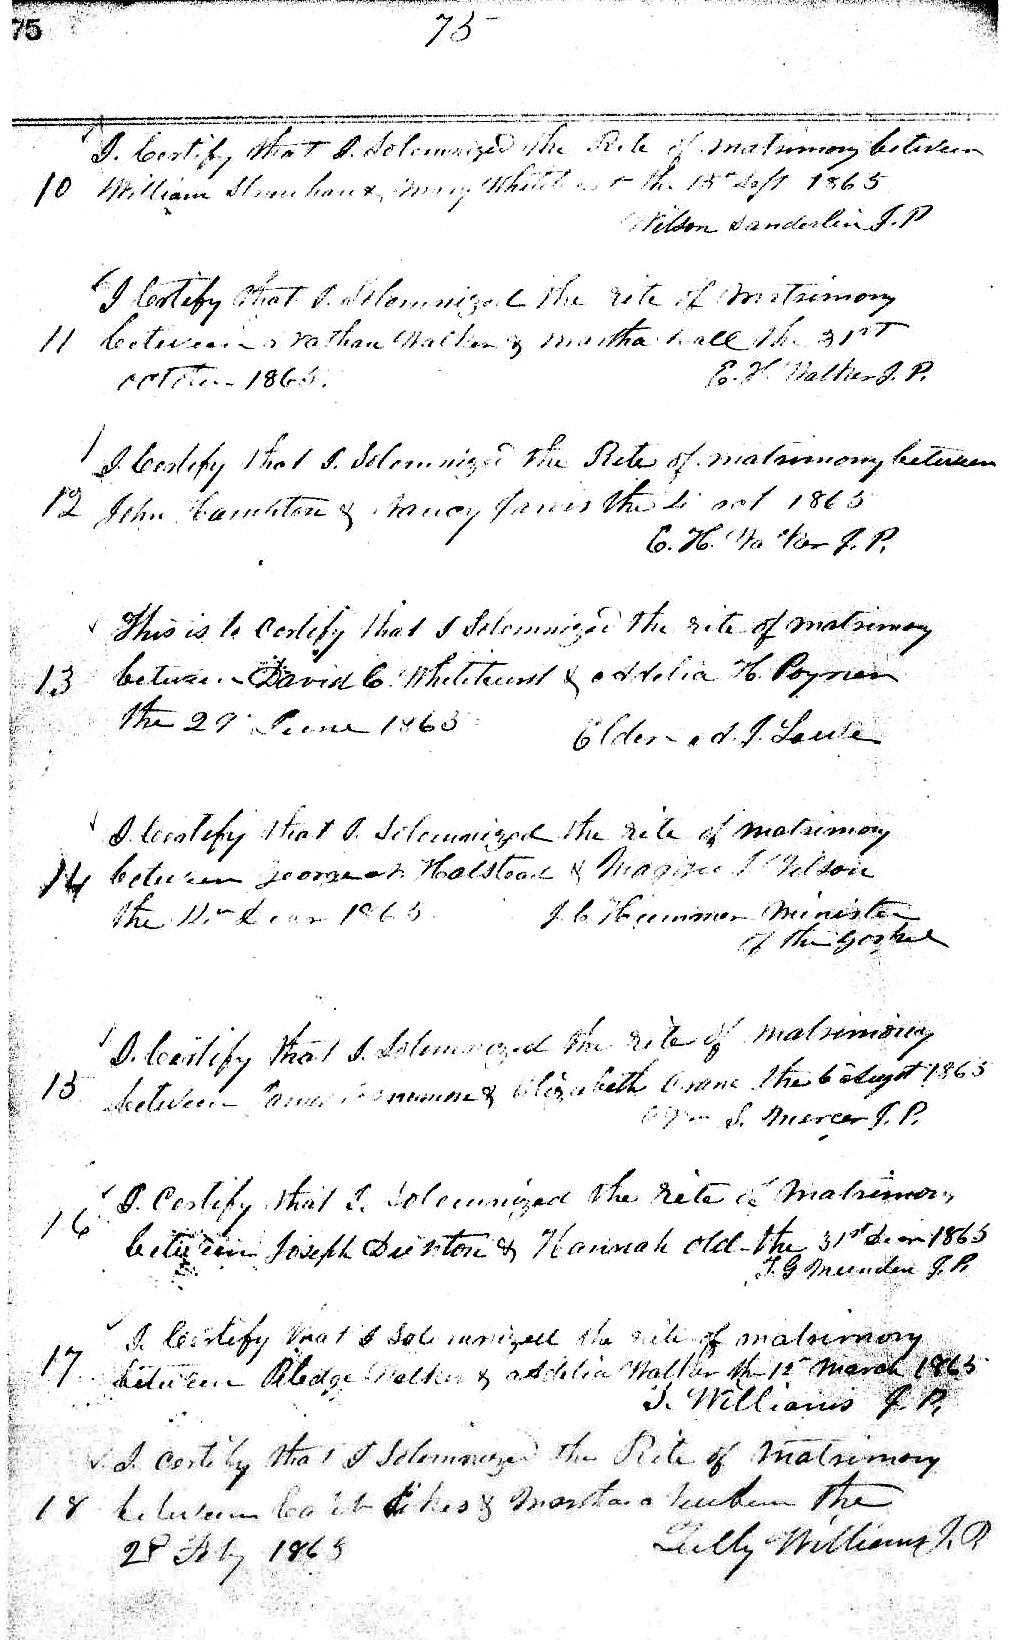 75
75
I. Certify that I. Solemnized the Rite of matrimony between
10 William & Mary the 15 Sept 1865
Wilson Sanderlin J. P
I Certify that I. Solemnized the rite of Matrimony
11 between Nathan Walker & Martha the 31st
1865.
E. H. Walker J. P.
I. Certify that I. Solemnized the Rite of matrimony between
12 John & Nancy Jarvis the oct 1865
E. H. Walker J. P.
This is to Certify that I Solemnized the rite of matrimony
13 between David C. Whitehurst & Addelia H. Poyner
the 29 June 1865
Elder
I. Certify that I. Solemnized the rite of matrimony
14 between George Halstead & Wilson
the 1865
J C Hummer Minister
of the Gospel
I. Certify that I. Solemnized the rite of matrimony
15 between & Elizabeth the 6 Augst 1865
S. Mercer J. P.
I. Certify that I. Solemnized the rite of Matrimony
16 between Joseph & Hannah Old the 31st 1865
T. G Munden J. P.
I. Certify that I Solemnized the rite of matrimony
17 between Pledge Walker & Addelia Walker the 12 March 1865
T. Williams J. P.
I. Certify that I Solemnized the Rite of Matrimony
18 between Sikes & Martha the
28 Feby 1865
Tully Williams J. P